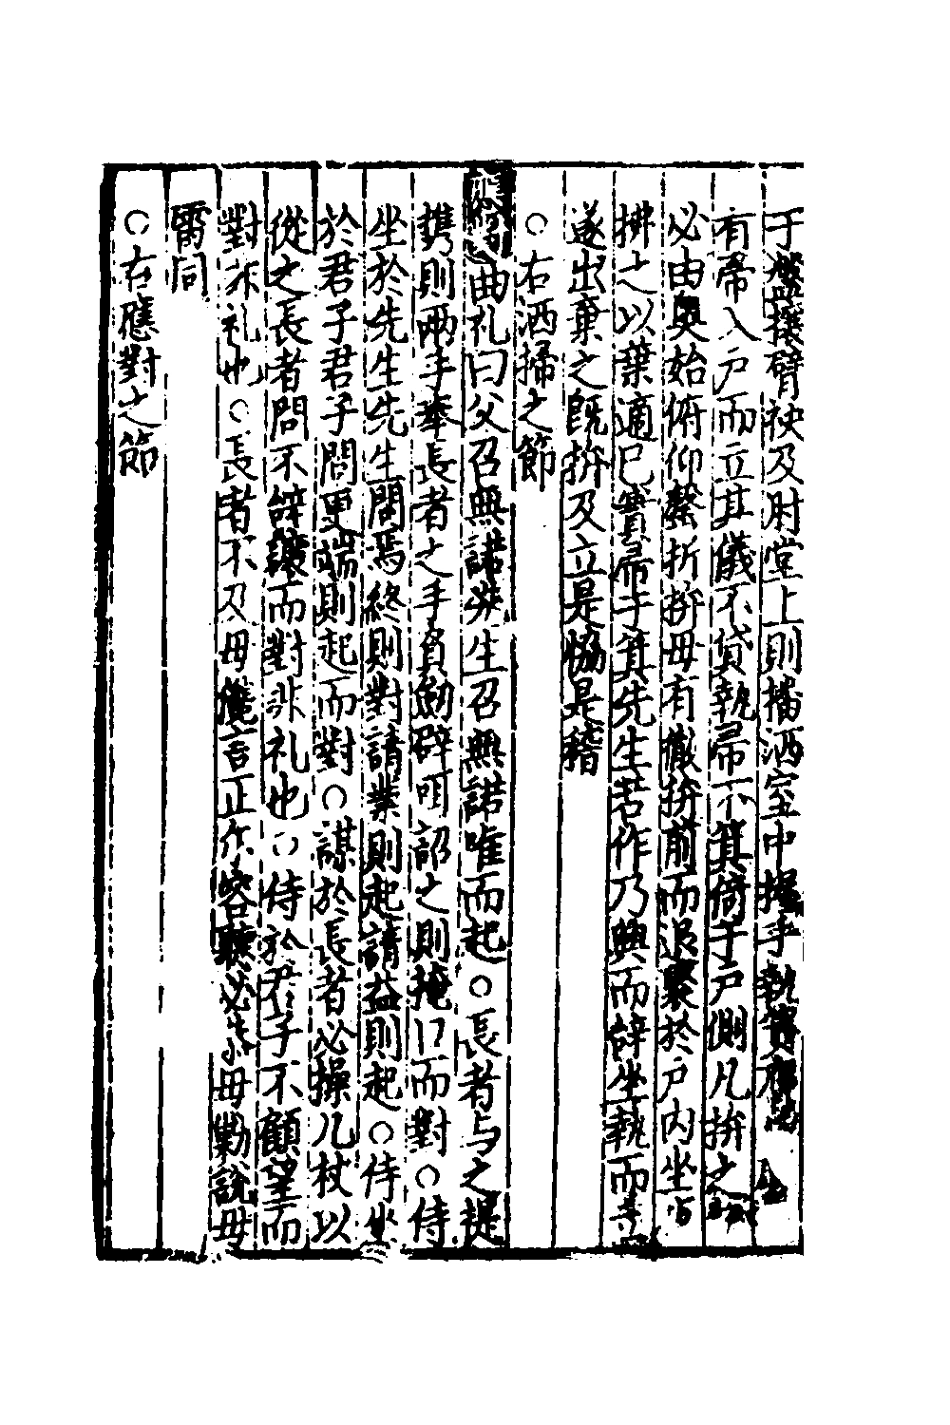 于盤攘臂袂及肘堂上則播洒室中握手執
有帚入户而立其儀不貸執帚下箕倚于户側凡拚之
必由奥始俯仰磬折拚毋有徹拚前而退聚於户内坐
拂之以葉適己實帚于箕先生若作乃興而辞坐執而
遂出棄之既拚及立是恊是稽
○右洒掃之節
曲礼曰父召無諾先生召無諾唯而起○長者与之提
携則兩手奉長者之手負劒辟咡詔之則掩口而對○侍
坐於先生先生問焉終則對請業則起請益則起○侍坐
於君子君子問更端則起而對○謀於長者必操几杖以
從之長者問不辞讓而對非礼也○侍於君子不顧望而
對非礼也○長者不及毋儳言正尓容聽必恭毋勦説毋
雷同
○右應對之節